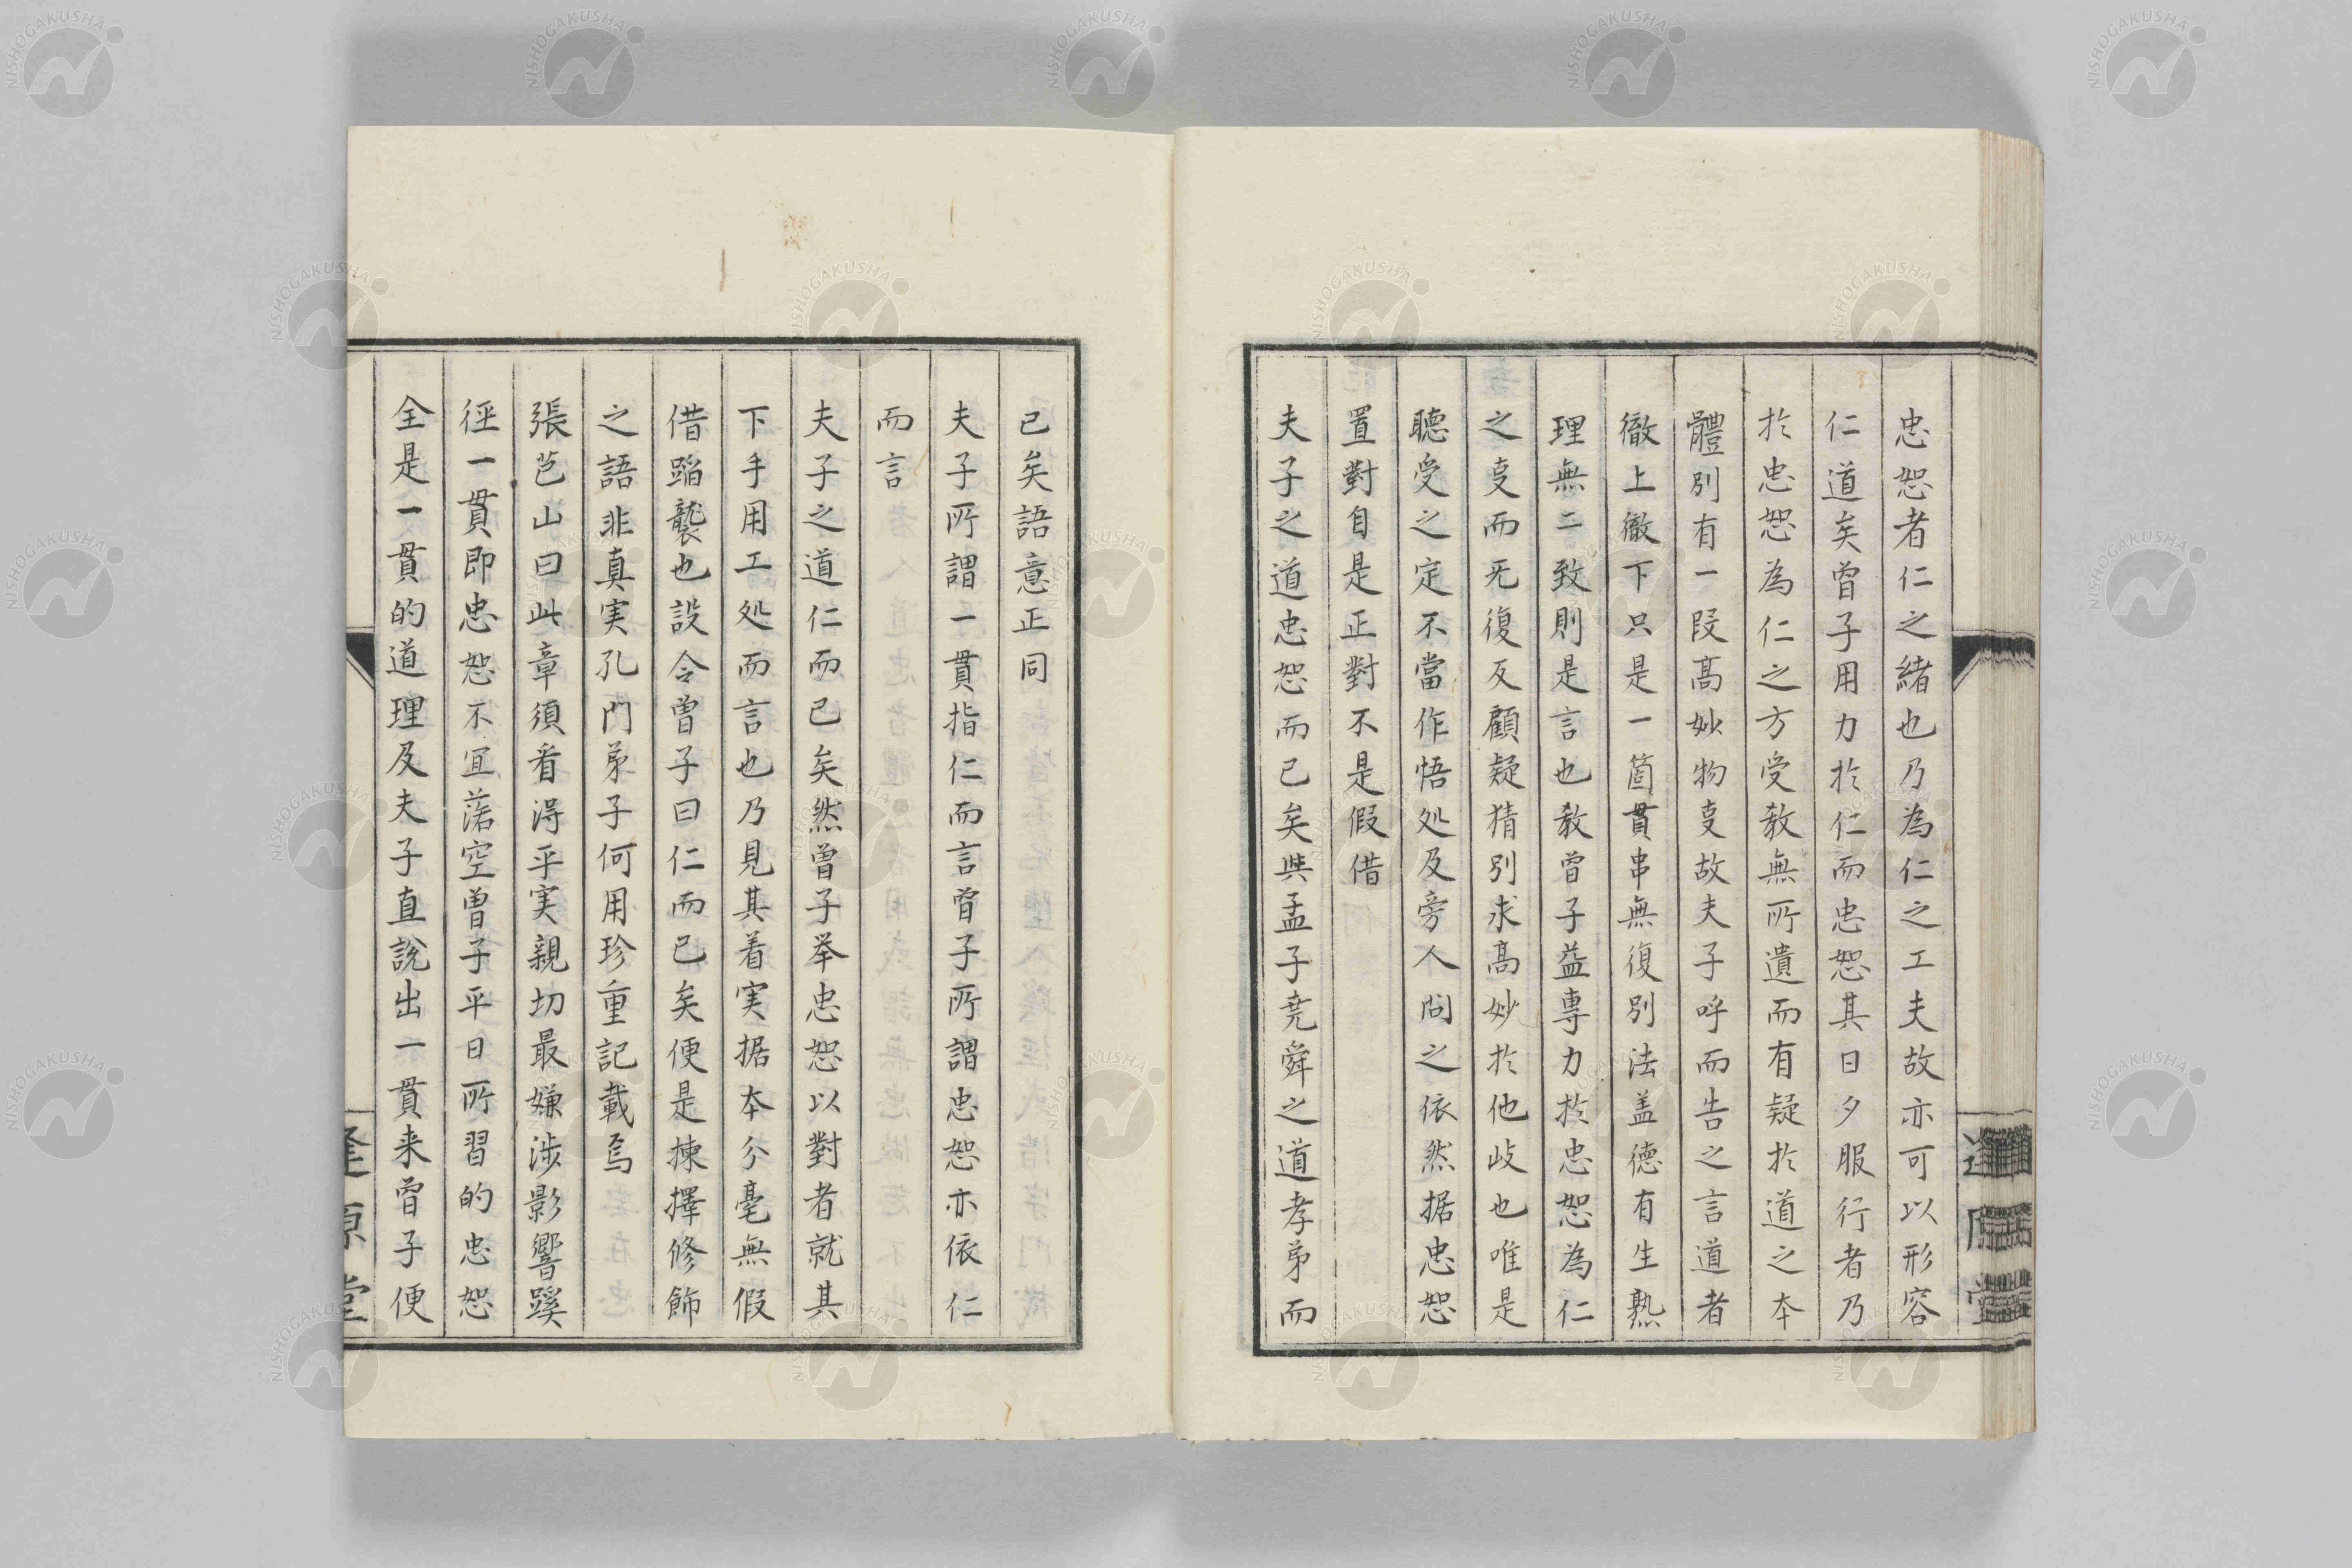 忠恕者仁之緒也乃為仁之工夫故亦可以形容
仁道矣曾子用力於仁而忠恕其日夕服行者乃
於忠恕為仁之方受教無所遺而有疑於道之本
體別有一段髙妙物叓故夫子呼而告之言道者
徹上徹下只是一箇貫串無復別法盖德有生熟
理無二致則是言也教曾子益專力於忠恕為仁
之叓而无復反顧疑猜別求髙妙於他岐也唯是
聽受之定不當作悟処及旁人問之依然据忠恕
置對自是正對不是假借
夫子之道忠恕而已矣與孟子尭舜之道孝弟而
已矣語意正同
夫子所謂一貫指仁而言曾子所謂忠恕亦依仁
而言
夫子之道仁而已矣然曾子举忠恕以對者就其
下手用工処而言也乃見其着実据本分毫無假
借蹈襲也設令曾子曰仁而已矣便是揀擇修飾
之語非真実孔門弟子何用珍重記載焉
張芑山曰此章須看得平実親切最嫌涉影響蹊
徑一貫即忠恕不宜落空曾子平日所習的忠恕
全是一貫的道理及夫子直說出一貫来曾子便
逢原堂
NISHOGAKUSHA